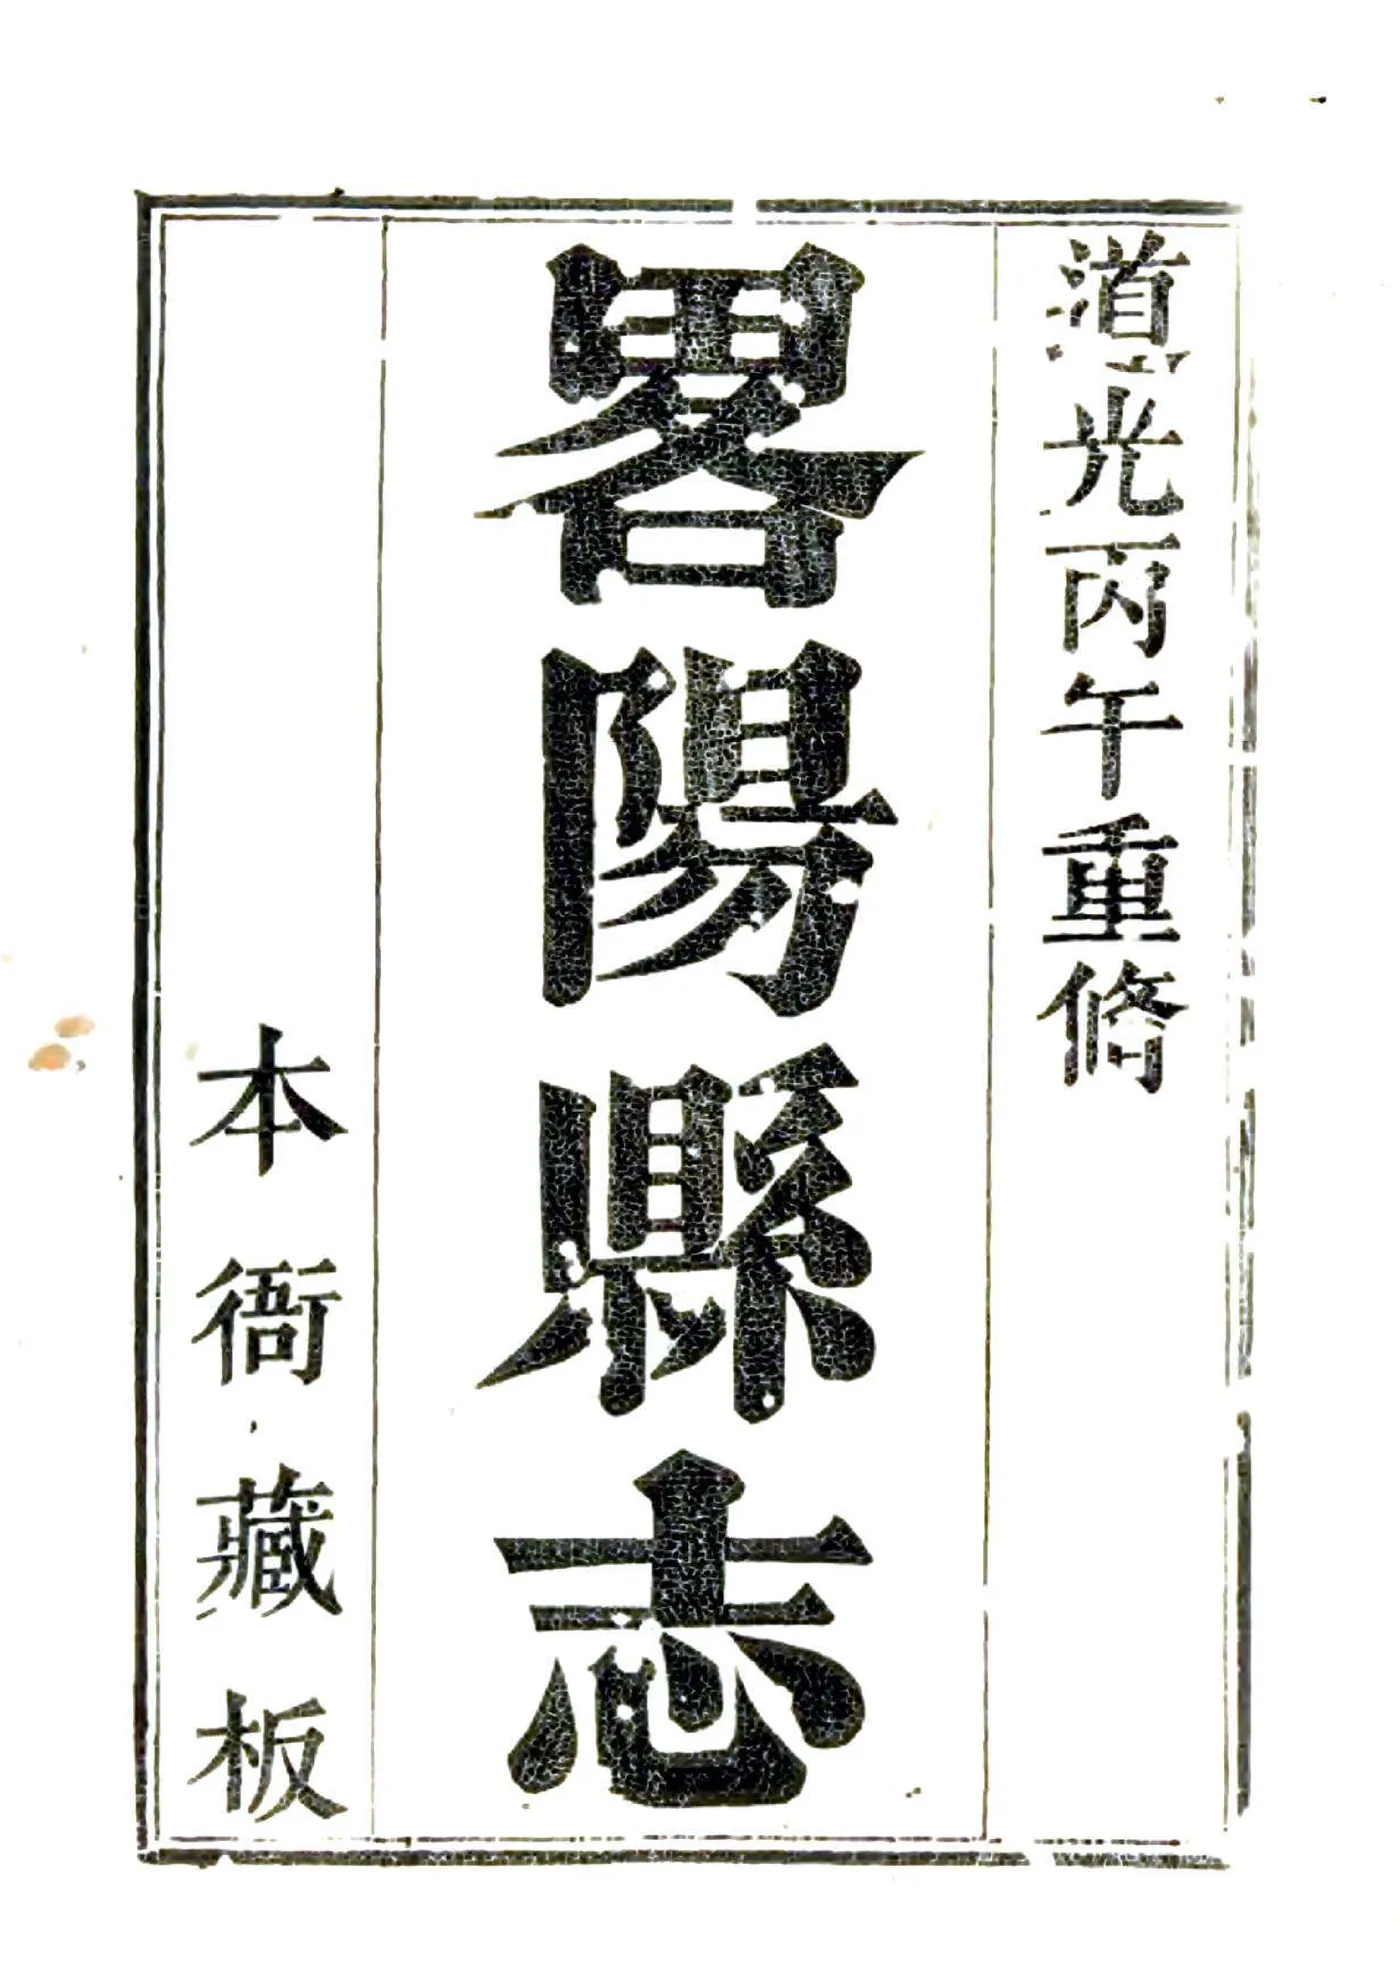 道光丙午重修
畧陽縣志
本衙藏板